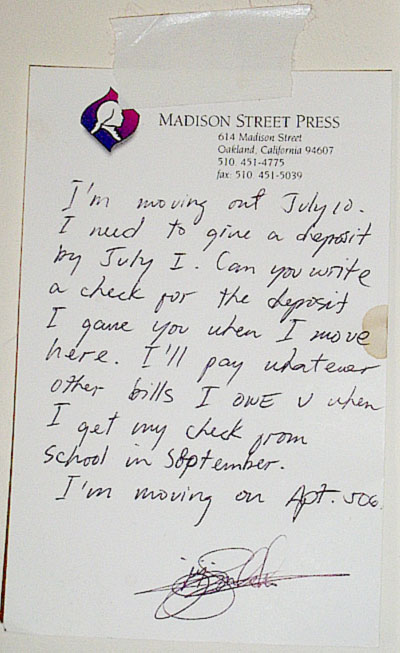 MADISON STREET PRESS
614 Madison Street
Oakland, California 94607
510 451-4775
fax: 510 451-5039
I'm moving out July 10.
I need to give a deposit
by July I. Can you write
a check for the deposit
I gave you when I move
here. I'll pay whatever
other bills I OWE U when
I get my check from
School in September.
I'm moving on Apt. 506.